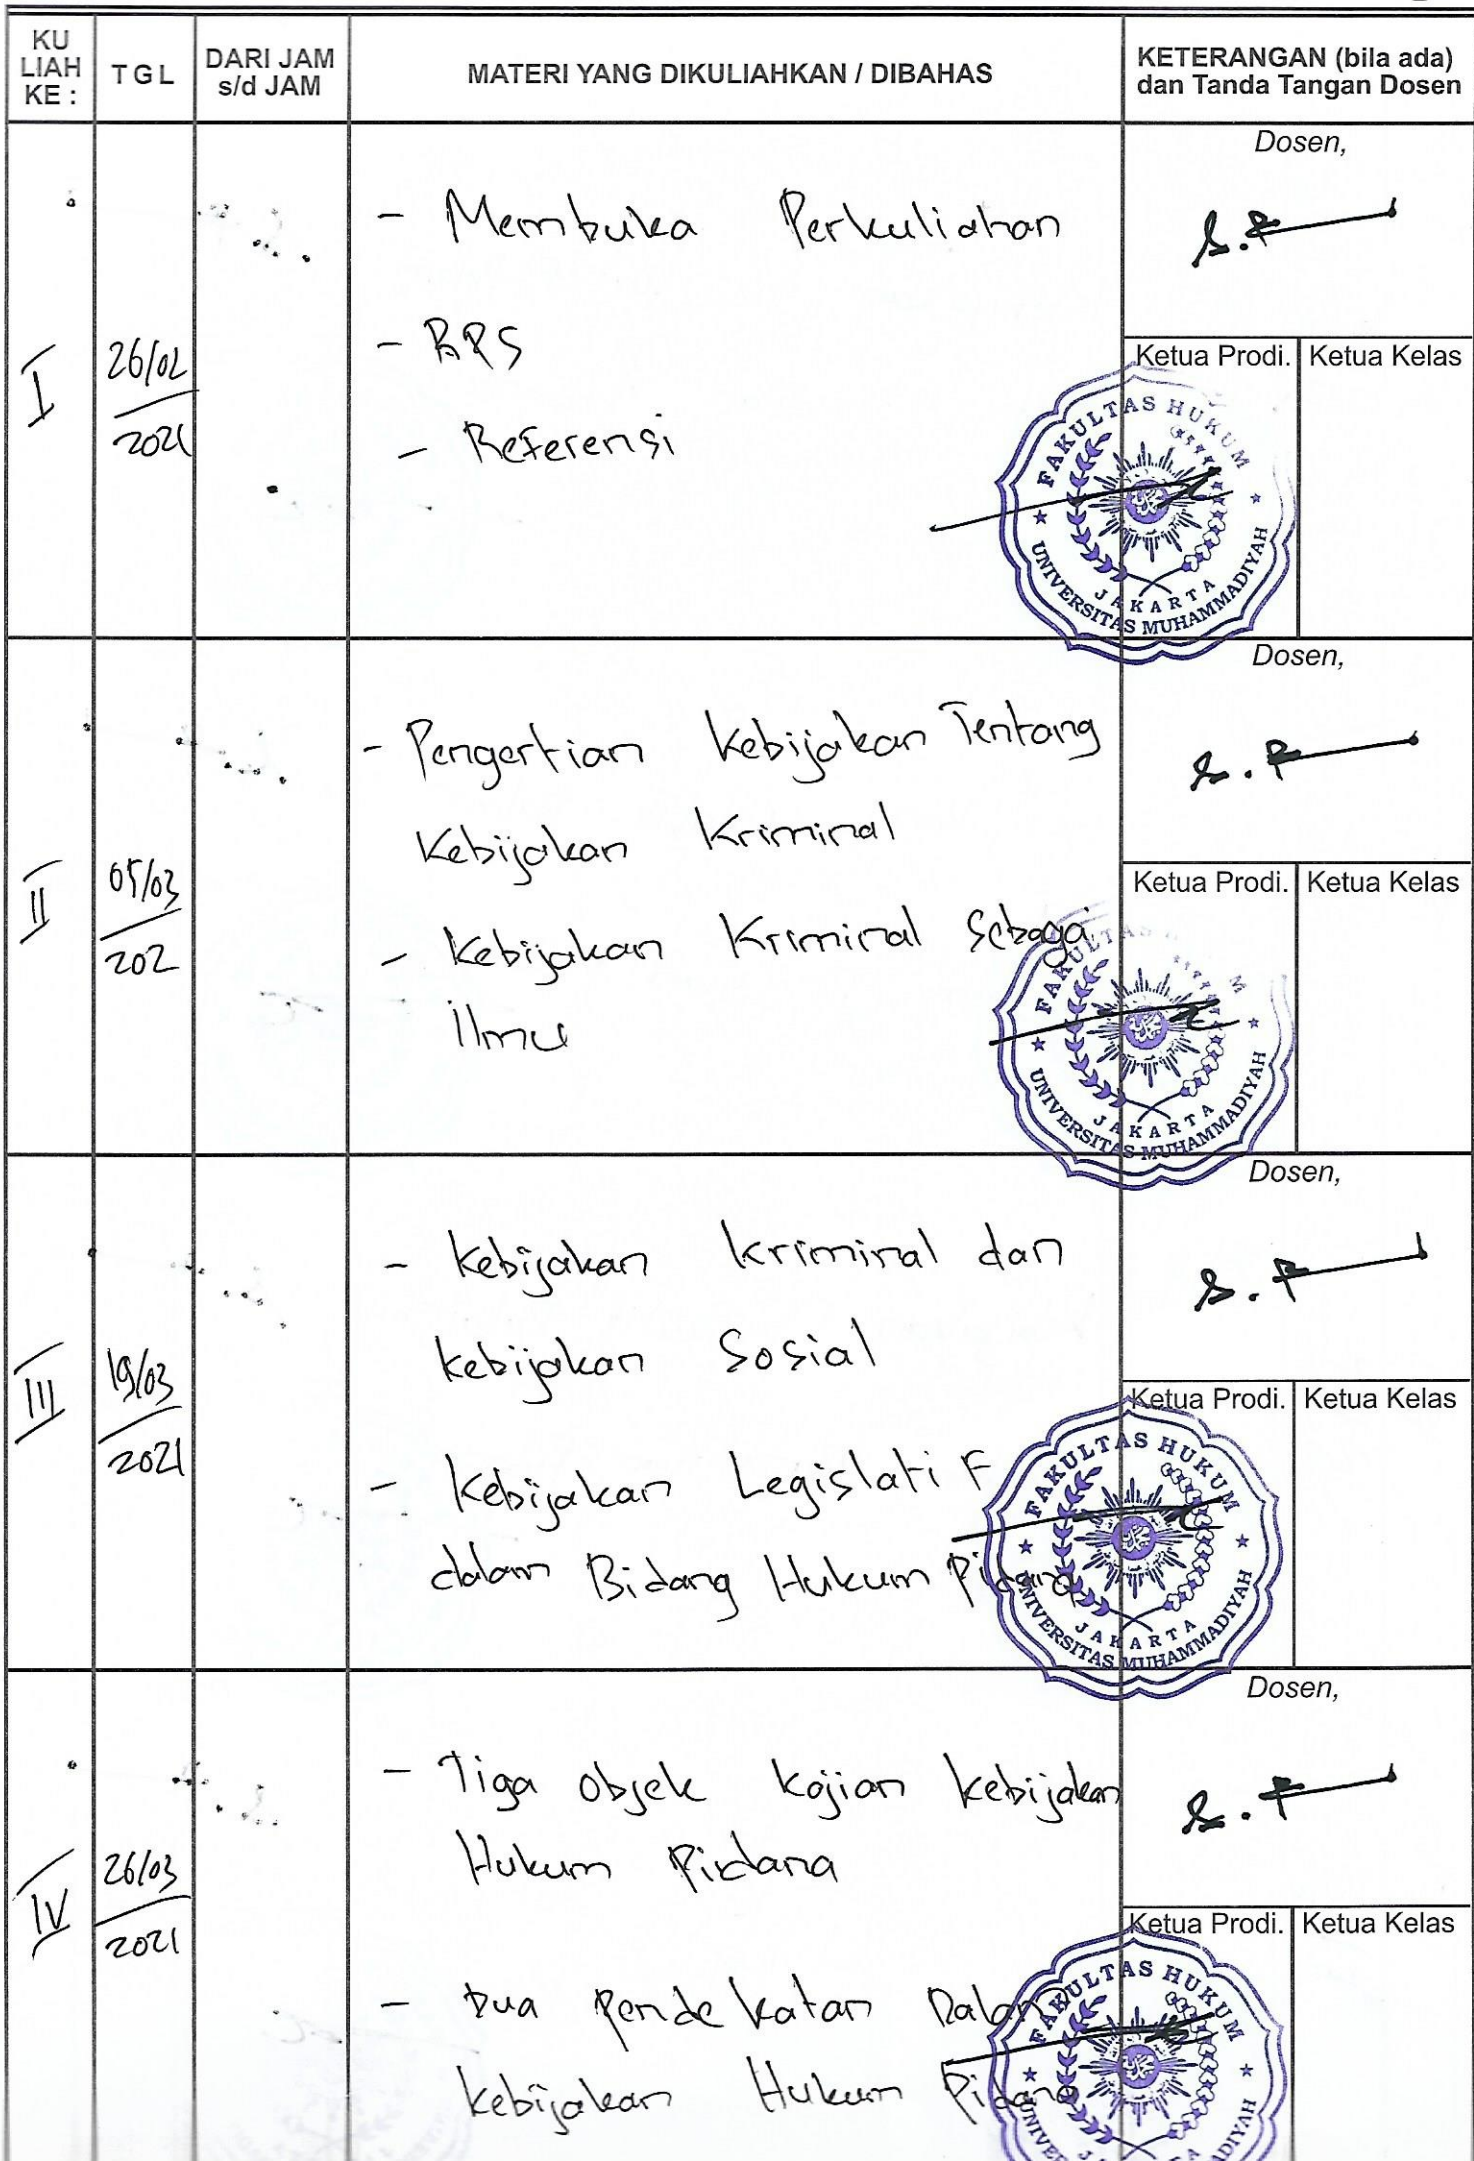 KU LIAH KE :
TGL
DARI JAM s/d JAM
MATERI YANG DIKULIAHKAN / DIBAHAS
KETERANGAN (bila ada) dan Tanda Tangan Dosen
I
26/02
2021
- Membuka Perkuliahan
- RPS
- Referensi
Dosen,
S.F
Ketua Prodi.
Ketua Kelas
FAKULTAS HUKUM
UNIVERSITAS MUHAMMADIYAH
JAKARTA
II
05/03
202
- Pengertian Kebijakan Tentang
Kebijakan Kriminal
- Kebijakan Kriminal Sebagai
Ilmu
Dosen,
S.F
Ketua Prodi.
Ketua Kelas
FAKULTAS HUKUM
UNIVERSITAS MUHAMMADIYAH
JAKARTA
III
19/03
2021
- Kebijakan Kriminal dan
Kebijakan Sosial
- Kebijakan Legislatif
dalam Bidang Hukum Pidana
Dosen,
S.F
Ketua Prodi.
Ketua Kelas
FAKULTAS HUKUM
UNIVERSITAS MUHAMMADIYAH
JAKARTA
IV
26/03
2021
- Tiga Objek Kajian Kebijakan
Hukum Pidana
- Dua Pendekatan Dalam
Kebijakan Hukum Pidana
Dosen,
S.F
Ketua Prodi.
Ketua Kelas
FAKULTAS HUKUM